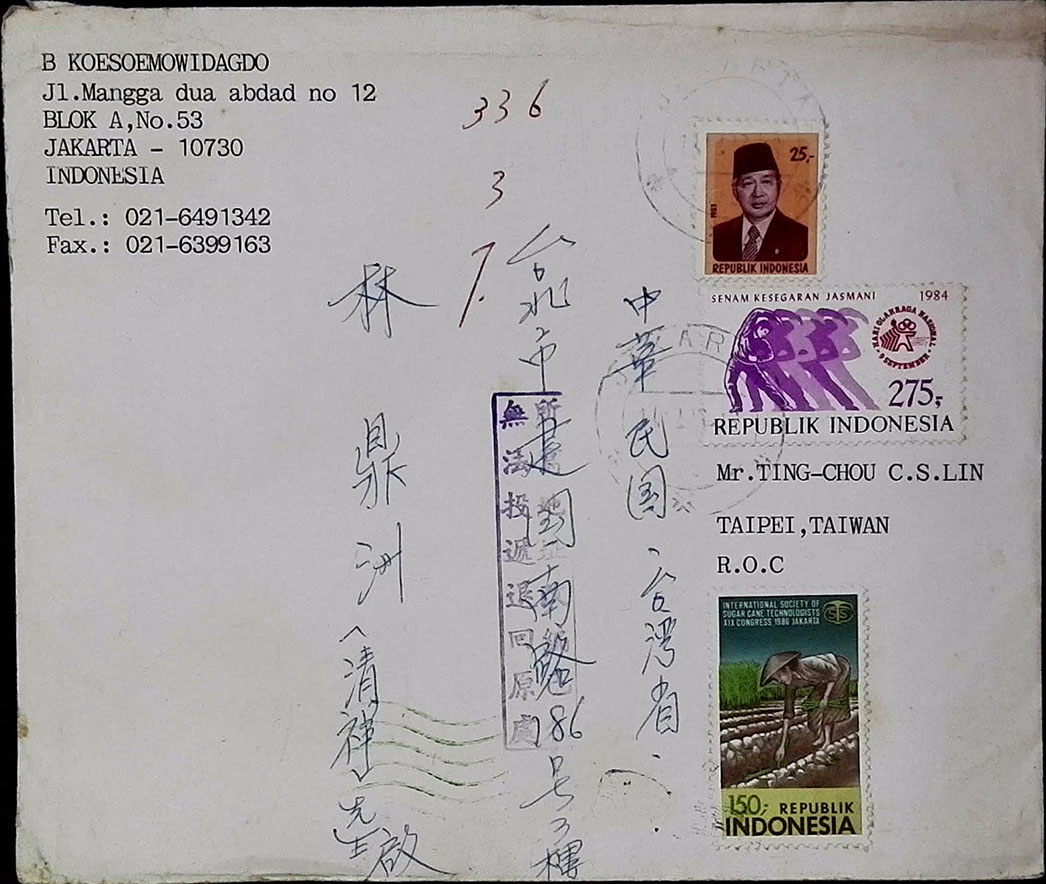 B KOESOEMOWIDAGDO
Jl.Mangga dua abdad no 12
BLOK A,No.53
JAKARTA - 10730
INDONESIA
Tel.: 021-6491342
Fax.: 021-6399163
336
3
7.
25,-
1983
REPUBLIK INDONESIA
SENAM KESEGARAN JASMANI 1984
HARI OLAHRAGA NASIONAL
9 SEPTEMBER
275,-
REPUBLIK INDONESIA
Mr.TING-CHOU C.S.LIN
TAIPEI,TAIWAN
R.O.C
INTERNATIONAL SOCIETY OF
SUGAR CANE TECHNOLOGISTS
XIX CONGRESS 1986 JAKARTA
150,- REPUBLIK
INDONESIA
中華民国、台湾省.
台北市建国南路186号3樓
無法投遞退回原處
林鼎洲(清禅)先生啟